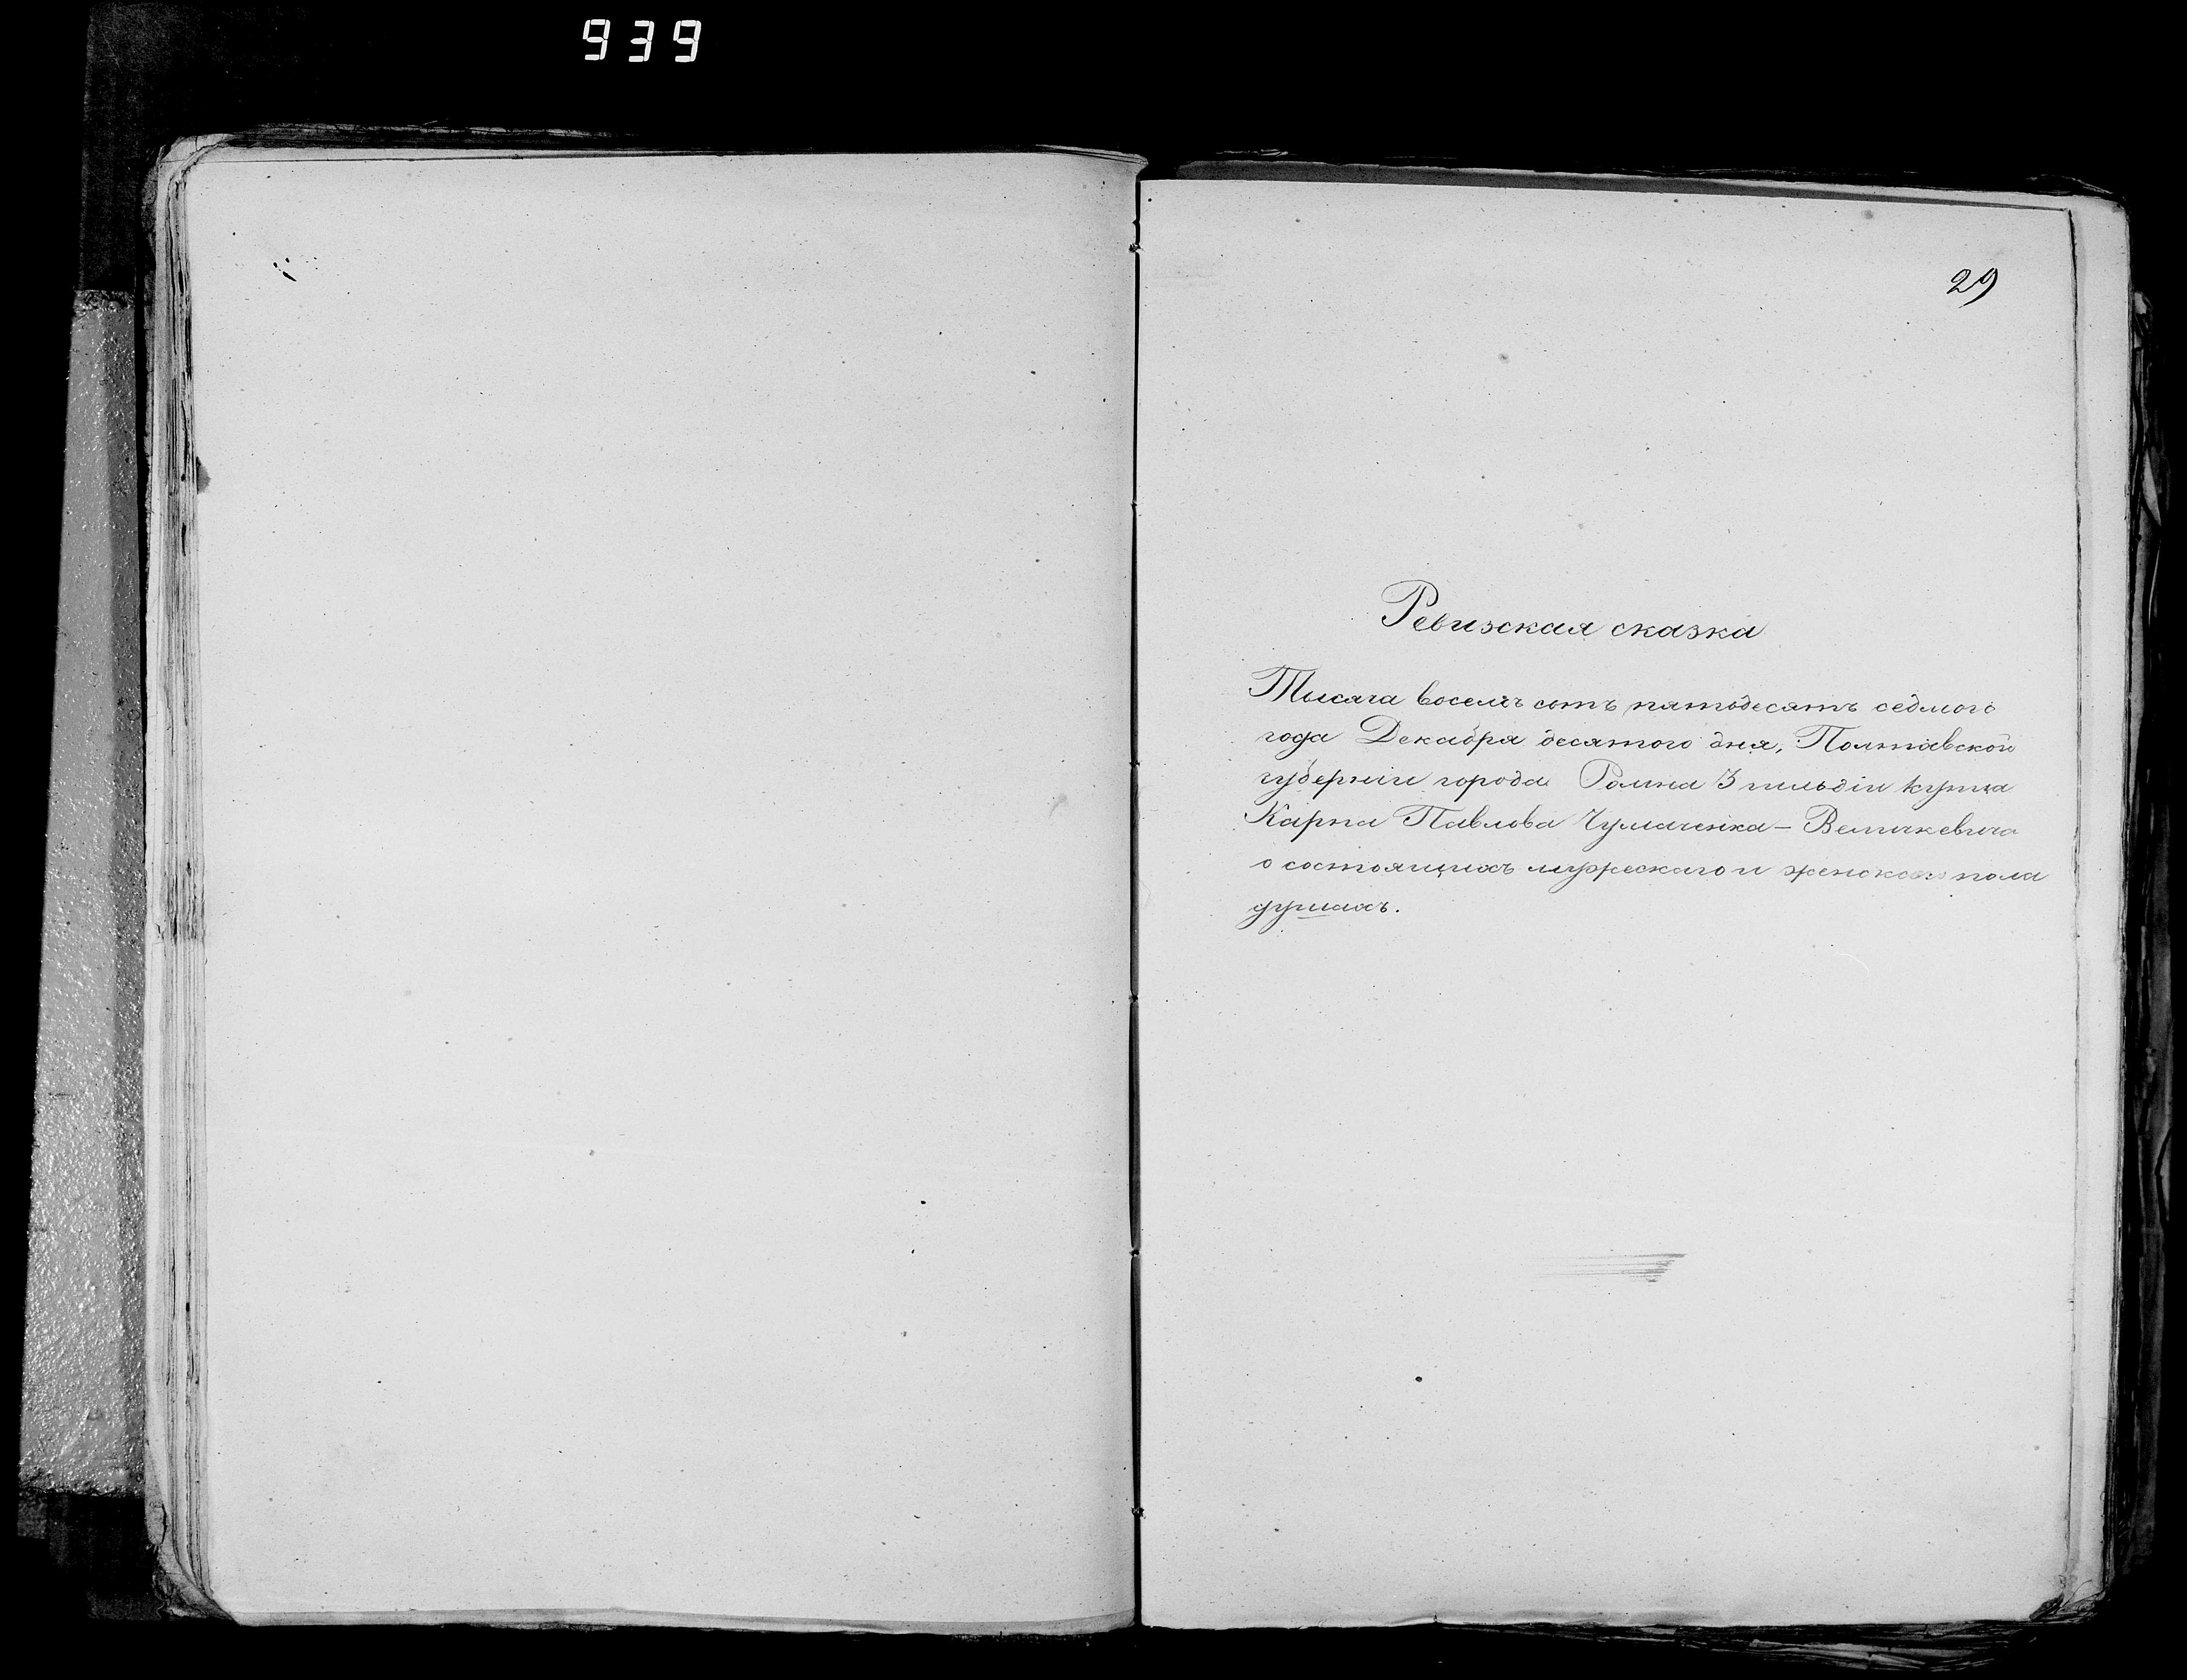 939
29
Ревизская сказка
Тысяча восемь сотъ пятьдесятъ седмого
года Декабря десятого дня, Полтавской
губерніи города Ромна 3 гильдіи купца
Карпа Павлова Чумаченка – Величкевича
о состоящихъ мужескаго и женскаго пола
душахъ.